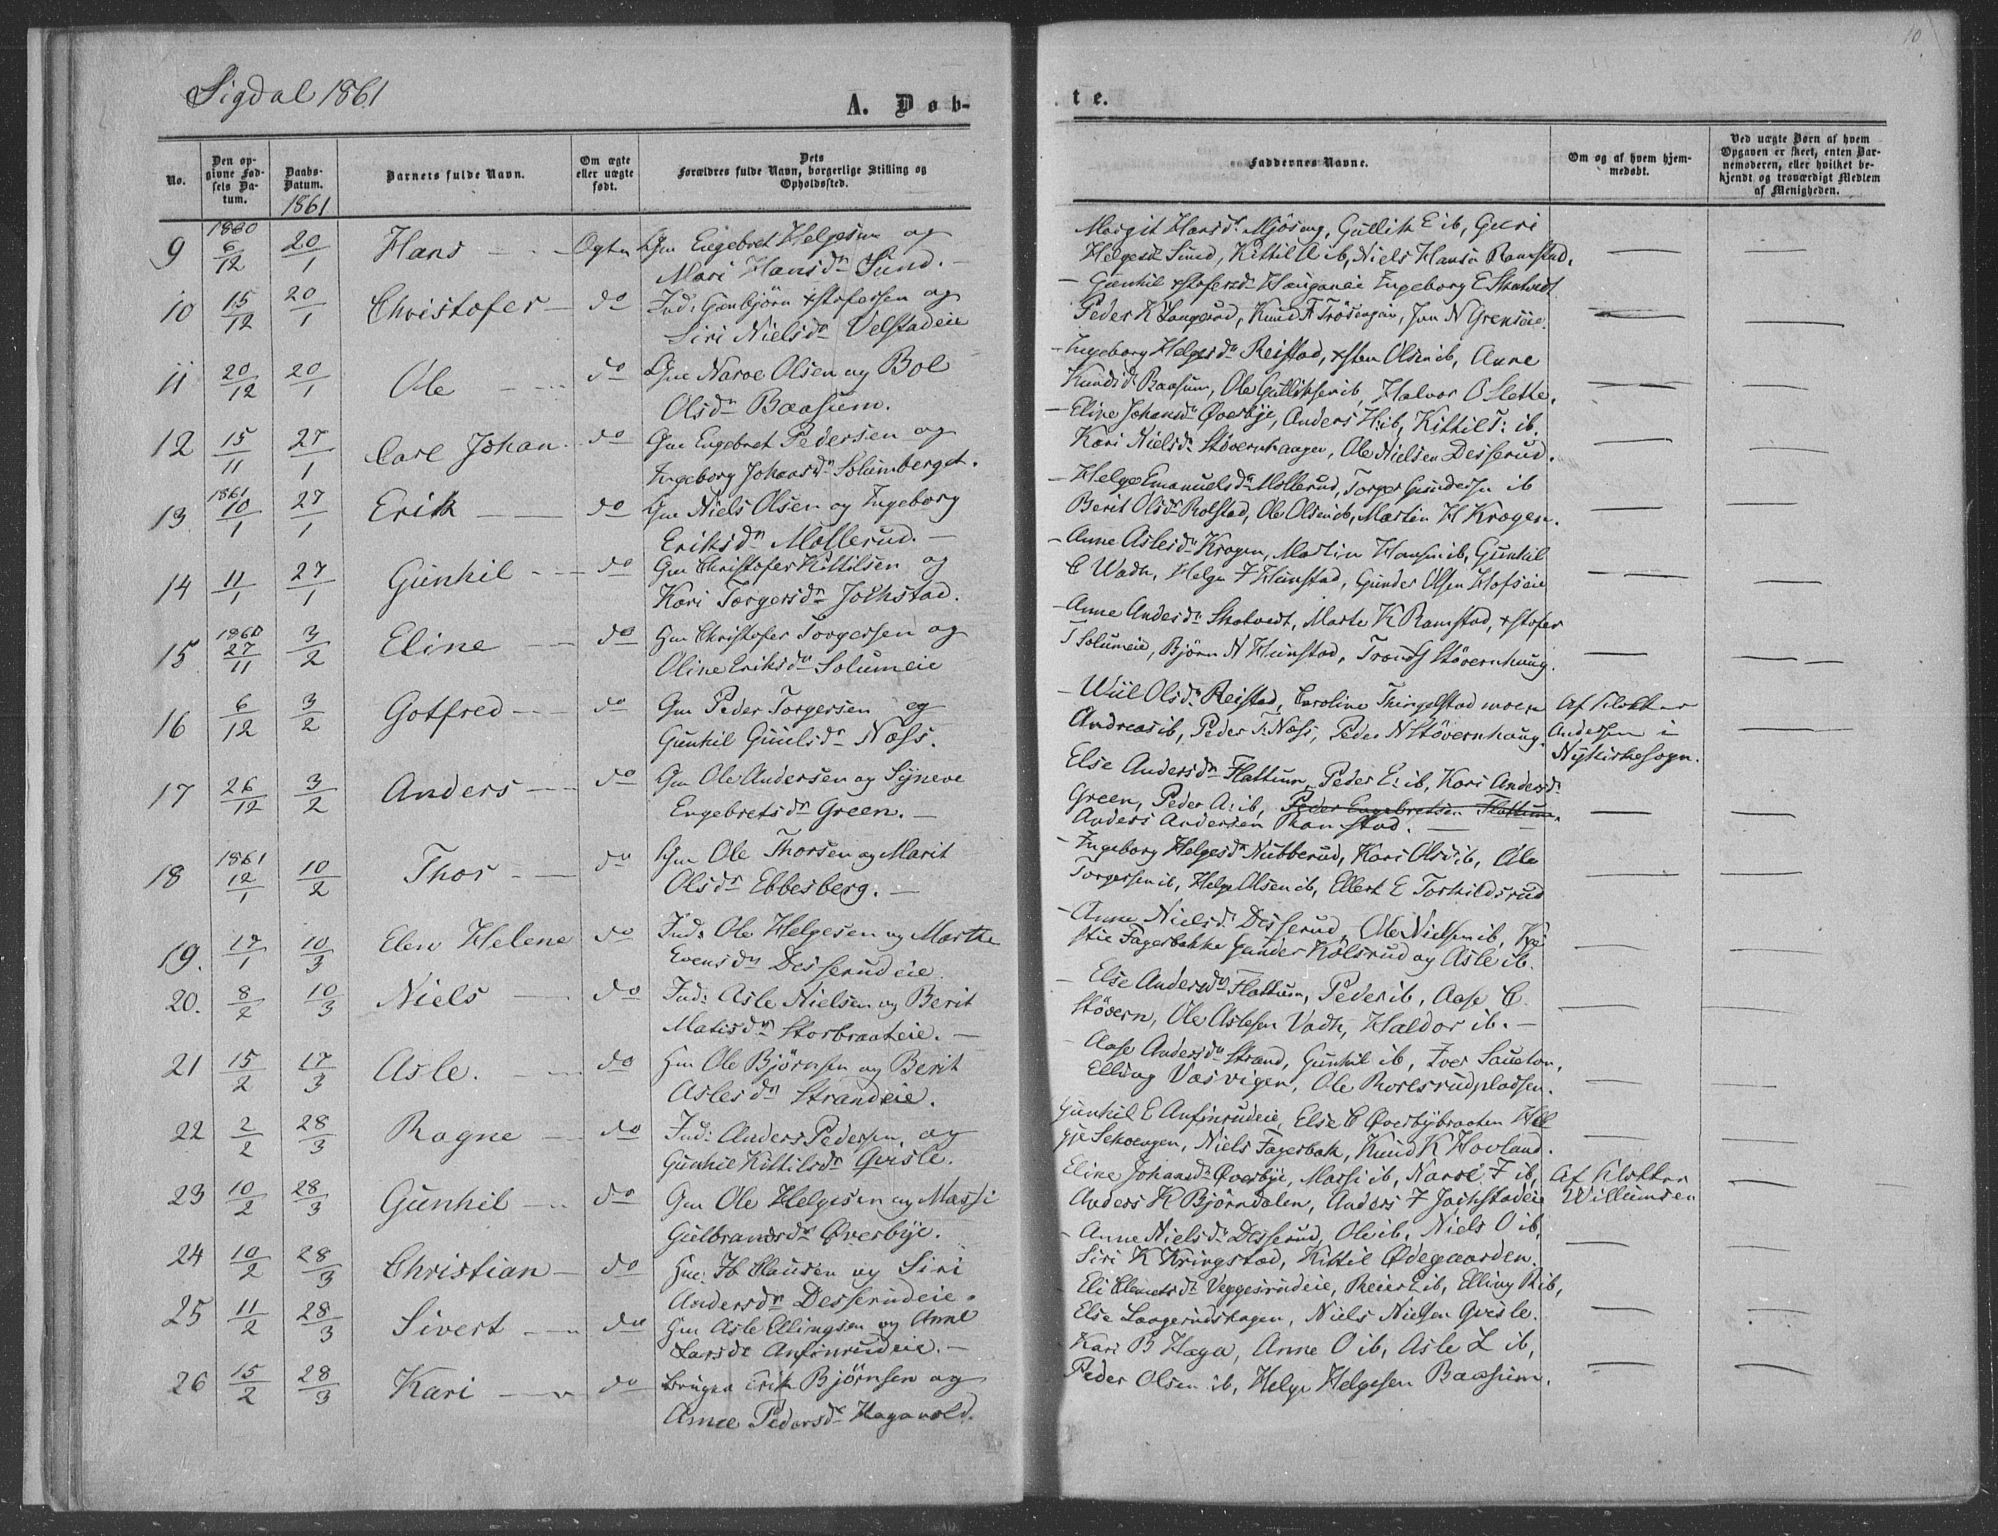 Sigdal 1861
A. Døb-
No.
Den op-
givne Fød-
sels Da-
tum.
Daabs-
Datum.
1861
Barnets fulde Navn.
Om ægte
eller uægte
født.
Dets
Forældres fulde Navn, borgerlige Stilling og
Opholdssted.
9 1860 6/12 20/1 Hans Ægte Gm Engebret Helgesen og
Mari Hansdr Sund.
10 15/12 20/1 Christofer do Ind: Gunbjörn xstofersen og
Siri Nielsdr Velstadeie
11 20/12 20/1 Ole do Gm Narve Olsen og Bol
Olsdr Baasum.
12 15/11 27/1 Carl Johan do Gm Engebret Pedersen og
Ingeborg Johansdr Solumberget.
13 1861 10/1 27/1 Erik do Gm Niels Olsen og Ingeborg
Eriksdr Mollerud.
14 11/1 27/1 Gunhil do Gm Christofer Kittilsen og
Kari Torgersdr Jokstad.
15 1860 27/11 3/2 Eline do Gm Christofer Torgersen og
Oline Eriksdr Solumeie
16 6/12 3/2 Gotfred do Gm Peder Torgersen og
Gunhil Guulsdr Næss.
17 26/12 3/2 Anders do Gm Ole Andersen og Syneve
Engebretsdr Green.
18 1861 12/1 10/2 Thor do Gm Ole Thorsen og Marit
Olsdr Ebbesberg.
19. 17/1 10/3 Elen Helene do Ind: Ole Helgesen og Marthe
Evensdr Desserudeie
20. 8/2 10/3 Niels do Ind: Asle Nielsen og Berit
Matisdr Storbraateie.
21 15/2 17/3 Asle. do Hm Ole Björnsen og Berit
Aslesdr Strandeie.
22 2/2 28/3 Ragne do Ind: Anders Pedersen, og
Gunhil Kittilsdr Qvisle.
23 10/2 28/3 Gunhil do Gm Ole Helgesen og Massi
Gulbrandsdr Øverbye.
24 10/2 28/3 Christian do Hm: Ib Clausen og Siri
Andersdr Desserudeie.
25 11/2 28/3 Sivert do Hm Asle Ellingsen og Anne
Larsdr Anfinrudeie.
26 15/2 28/3 Kari do Bruger Erik Björnsen og
Anne Pedersdr Hagavold.
10
te.
Faddernes Navne.
Om og af hvem hjem-
medøbt.
Ved uægte Børn af hvem
Opgaven er skeet, enten Bar-
nemoderen, eller hvilket be-
kjendt og troværdigt Medlem
af Menigheden.
Margit Hansdr Mjöseng, Gullik E ib, Guri
Helgesdr Sund, Kittil A ib, Niels Hansn Ramstad.
Gunhil xstofersdr Hauganeie Ingeborg E Skatvedt
Peder K Laugerud, Knud F Trösengen, Jon N Grenseie.
Ingeborg Helgesdr Reistad, xsten Olsen ib, Anne
Knudsdr Baasum, Ole Gulliksen ib, Halvor O Slette.
Eline Johansdr Øverbye, Anders H: ib, Kittil T: ib.
Kari Nielsdr Stövernhaugen, Ole Nielsen Desserud.
Helge Emanuelsdr Mollerud, Torger Gundersen ib
Berit Olsdr Rolstad, Ole Olsen ib, Martin H Krogen.
Anne Aslesdr Krogen, Martin Hansen ib, Gunhil
C Wadh, Helge F Hunstad, Gunder Olsen Hofseie
Anne Andersdr Skatvedt, Marte K Ramstad, xstofer
T Solumeie, Björn N Hunstad, Trond S Stövernhaug.
Wiil Olsdr Reistad, Caroline Thingelstad moen
Andreas ib, Peder T: Næss, Peder N Stövernhaug.
Af Klokker
Andersen i
Nykirkesogn.
Else Andersdr Flattum, Peder E: ib, Kari Andersdr
Green, Peder A: ib, Peder Engebretsen Flattum.
Anders Andersen Ramstad.
Ingeborg Helgesdr Nubberud, Kari Olsdr ib, Ole
Torgersen ib, Helge Olsen ib, Ellert E Torkildsrud
Anne Nielsdr Desserud, Ole Nielsen ib, Kri
stie Fagerbakke Gunder Kolsrud og Asle ib.
Else Andersdr Flattum, Peder ib, Aase C.
Stövern, Ole Aslesen Vadh, Haldor ib.
Aase Andersdr Strand, Gunhil ib, Iver
Elling Vasvigen, Ole Rolsrudpladsen.
Gunhil E Anfinrudeie, Else C Øverbybraaten Hel
ge Skoengen, Niels Fagerbak, Knud K Hovland.
Eline Johansdr Øverbye, Massi ib, Narve F ib,
Anders K Björndalen, Anders F Jokstadeie
Af Klokker
Willumsen
Anne Nielsdr Desserud, Ole ib, Niels O ib,
Siri K Kringstad, Kittil Ødegaarden.
Eli Clemetsdr Veggesrudeie, Reier E ib, Elling R ib,
Else Laagerudshagen, Niels Nielsen Qvisle.
Kari B Haga, Anne O ib, Asle L ib,
Peder Olsen ib, Helge Helgesen Baasum.